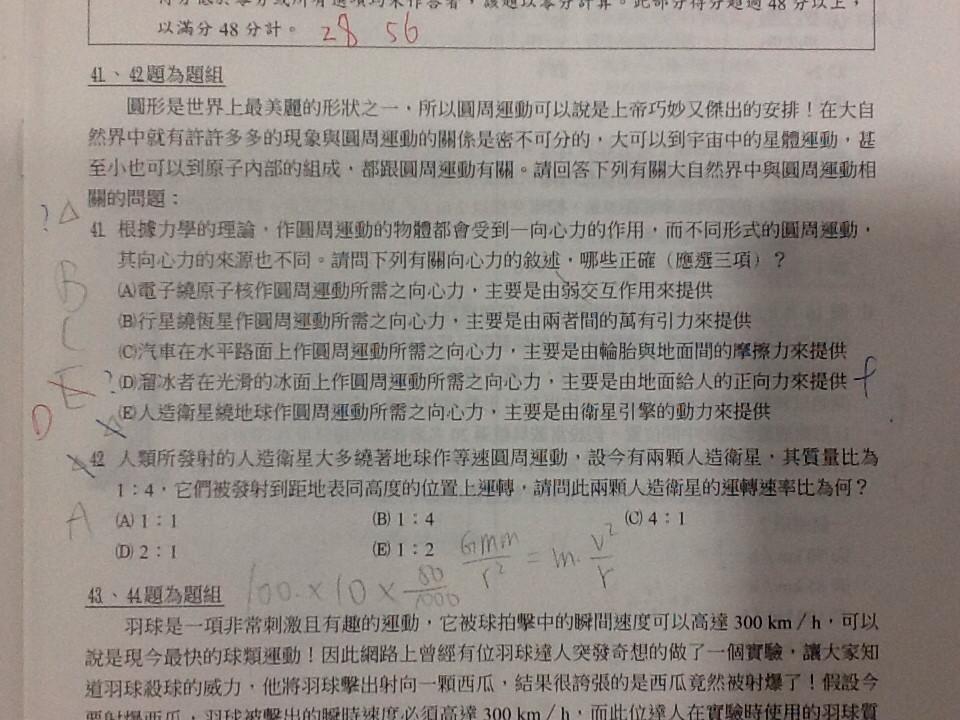 得分低於零分或所有選項均未作答者，該題以零分計算。此部分得分超過 48 分以上，
以滿分 48 分計。 28 56
41、42題為題組
圓形是世界上最美麗的形狀之一，所以圓周運動可以說是上帝巧妙又傑出的安排！在大自
然界中就有許許多多的現象與圓周運動的關係是密不可分的，大可以到宇宙中的星體運動，甚
至小也可以到原子內部的組成，都跟圓周運動有關。請回答下列有關大自然界中與圓周運動相
關的問題：
?△
41. 根據力學的理論，作圓周運動的物體都會受到一向心力的作用，而不同形式的圓周運動，
其向心力的來源也不同。請問下列有關向心力的敘述，哪些正確（應選三項）？
B
(A)電子繞原子核作圓周運動所需之向心力，主要是由弱交互作用來提供
(B)行星繞恆星作圓周運動所需之向心力，主要是由兩者間的萬有引力來提供
C
(C)汽車在水平路面上作圓周運動所需之向心力，主要是由輪胎與地面間的摩擦力來提供
E ? (D)溜冰者在光滑的冰面上作圓周運動所需之向心力，主要是由地面給人的正向力來提供 f
D (E)人造衛星繞地球作圓周運動所需之向心力，主要是由衛星引擎的動力來提供
42. 人類所發射的人造衛星大多繞著地球作等速圓周運動，設今有兩顆人造衛星，其質量比為
1：4，它們被發射到距地表同高度的位置上運轉，請問此兩顆人造衛星的運轉速率比為何？
A (A) 1：1 (B) 1：4 (C) 4：1
(D) 2：1 (E) 1：2 GMm/r² = m · v²/r
43、44題為題組 100 × 10 × 80/1000
羽球是一項非常刺激且有趣的運動，它被球拍擊中的瞬間速度可以高達 300 km／h，可以
說是現今最快的球類運動！因此網路上曾經有位羽球達人突發奇想的做了一個實驗，讓大家知
道羽球殺球的威力，他將羽球擊出射向一顆西瓜，結果很誇張的是西瓜竟然被射爆了！假設今
要射爆西瓜，羽球被擊出的瞬時速度必須高達 300 km／h，而此位達人在實驗時使用的羽球質